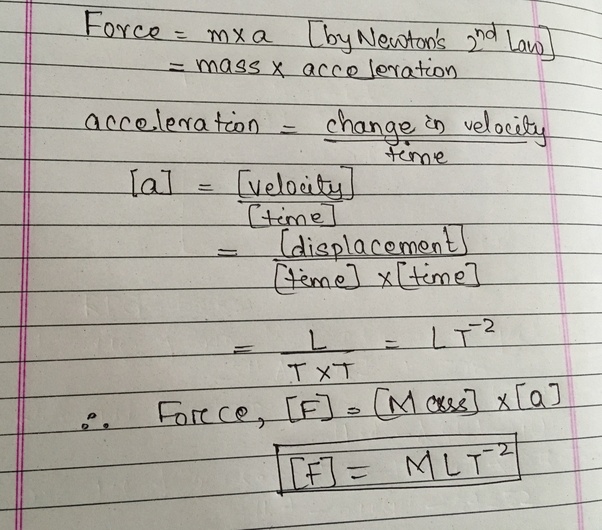 Force = m×a [by Newton's 2nd Law]
= mass × acceleration
acceleration = change in velocity / time
[a] = [velocity] / [time]
= [displacement] / [time] × [time]
= L / T×T = LT⁻²
∴ Force, [F] = [Mass] × [a]
[F] = MLT⁻²